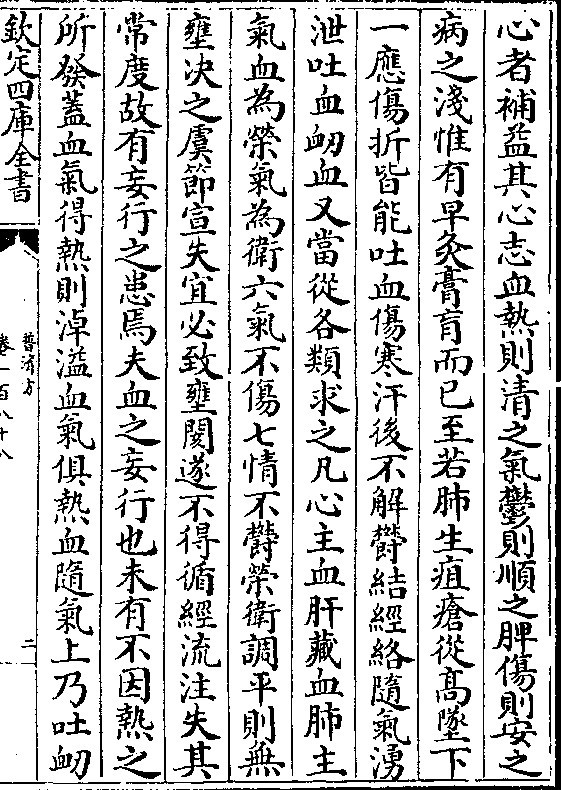 心者補益其心志血熱則清之氣鬱則順之脾傷則安之
病之淺惟有早灸膏肓而已至若肺生疽瘡從髙墜下
一應傷折皆能吐血傷寒汗後不解欝結經絡隨氣湧
泄吐血衂血又當從各類求之凡心主血肝藏血肺主
氣血為榮氣為衛六氣不傷七情不欝榮衛調平則無
壅決之虞節宣失宜必致壅閼遂不得循經流注失其
常度故有妄行之患焉夫血之妄行也未有不因熱之
所發蓋血氣得熱則淖溢血氣俱熱血隨氣上乃吐衂
欽定四庫全書
普濟方
卷一百八十八
二